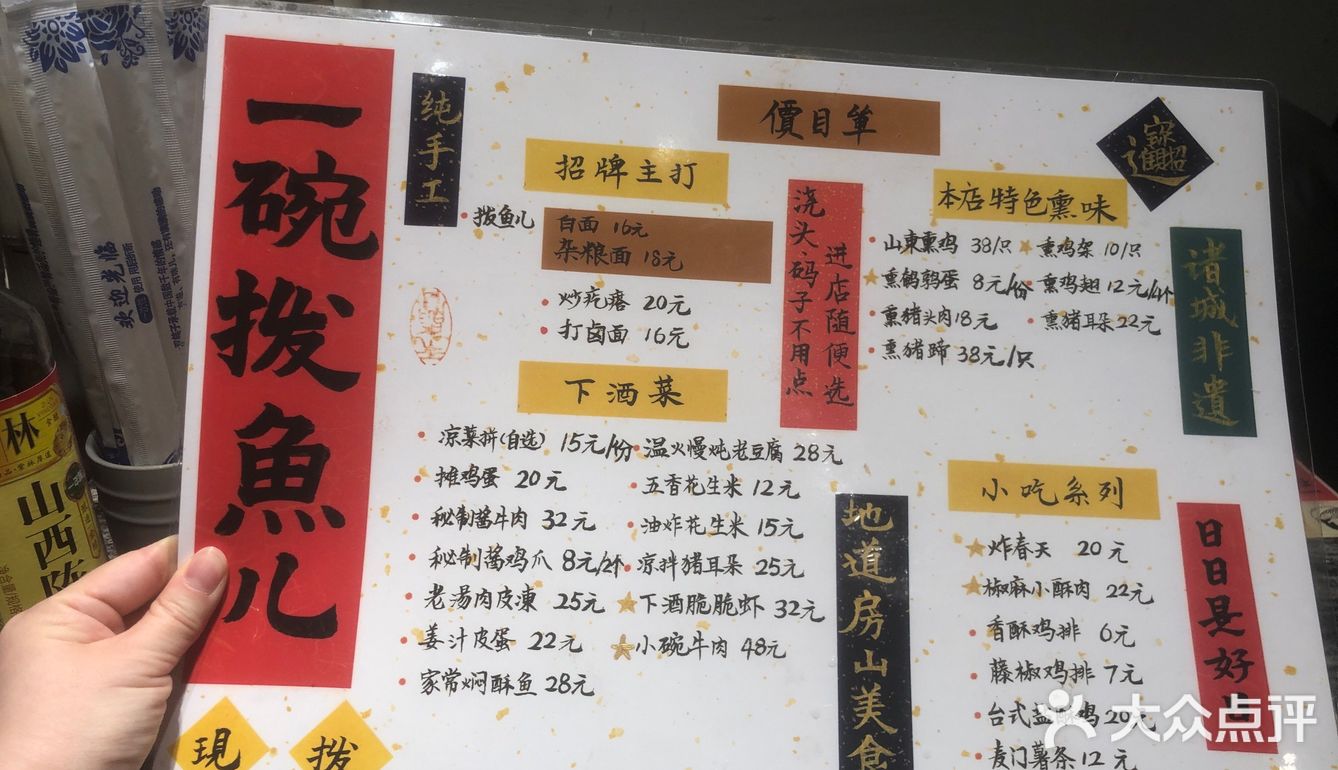 一碗拨魚儿
纯手工
價目单
招牌主打
拨鱼儿
白面 16元
杂粮面 18元
炒疙瘩 20元
打卤面 16元
浇头、码子不用点
进店随便选
本店特色熏味
山東熏鸡 38/只
熏鸡架 10/只
熏鹌鹑蛋 8元/份
熏鸡翅 12元/4个
熏猪头肉 18元
熏猪耳朵 22元
熏猪蹄 38元/只
招財進寳
诸城非遗
下酒菜
凉菜拼(自选) 15元/份
温火慢炖老豆腐 28元
摊鸡蛋 20元
五香花生米 12元
秘制酱牛肉 32元
油炸花生米 15元
秘制酱鸡爪 8元/2个
凉拌猪耳朵 25元
老湯肉皮凍 25元
下酒脆脆虾 32元
姜汁皮蛋 22元
小碗牛肉 48元
家常焖酥鱼 28元
地道房山美食
小吃系列
炸春天 20元
椒麻小酥肉 22元
香酥鸡排 6元
藤椒鸡排 7元
台式盐酥鸡 20元
麦门薯条 12元
日日是好日
現
拨
欢迎光临
林
山西陈
大众点评